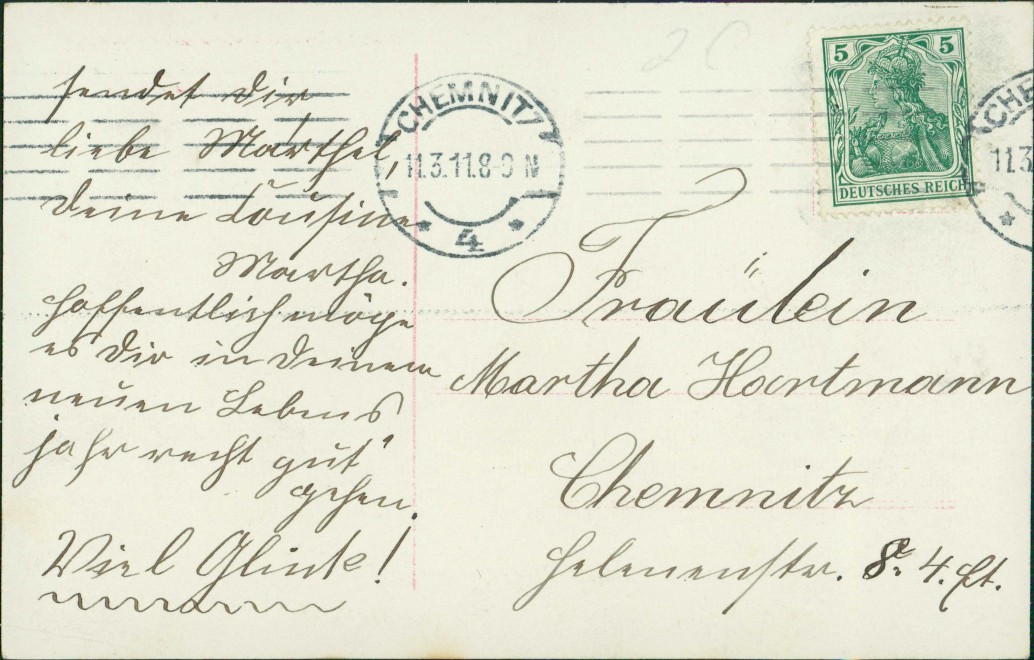 sendet dir
liebe Marthel,
deine Cousine
Martha.
Hoffentlich möge
es dir in deinem
neuen Lebens
jahr recht gut
gehen.
Viel Glück!
CHEMNITZ
11.3.11.8-9 N
* 4 *
5 5
DEUTSCHES REICH
CHE
11.3
*
Fräulein
Martha Hartmann
Chemnitz
Helenenstr. 8. 4. Et.